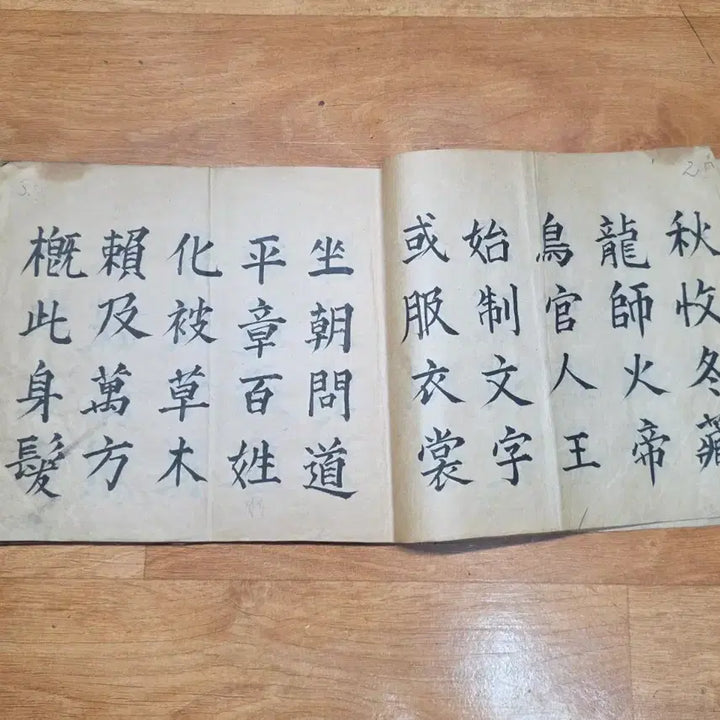 秋收冬藏
龍師火帝
鳥官人王
始制文字
或服衣裳
坐朝問道
平章百姓
化被草木
賴及萬方
概此身髮